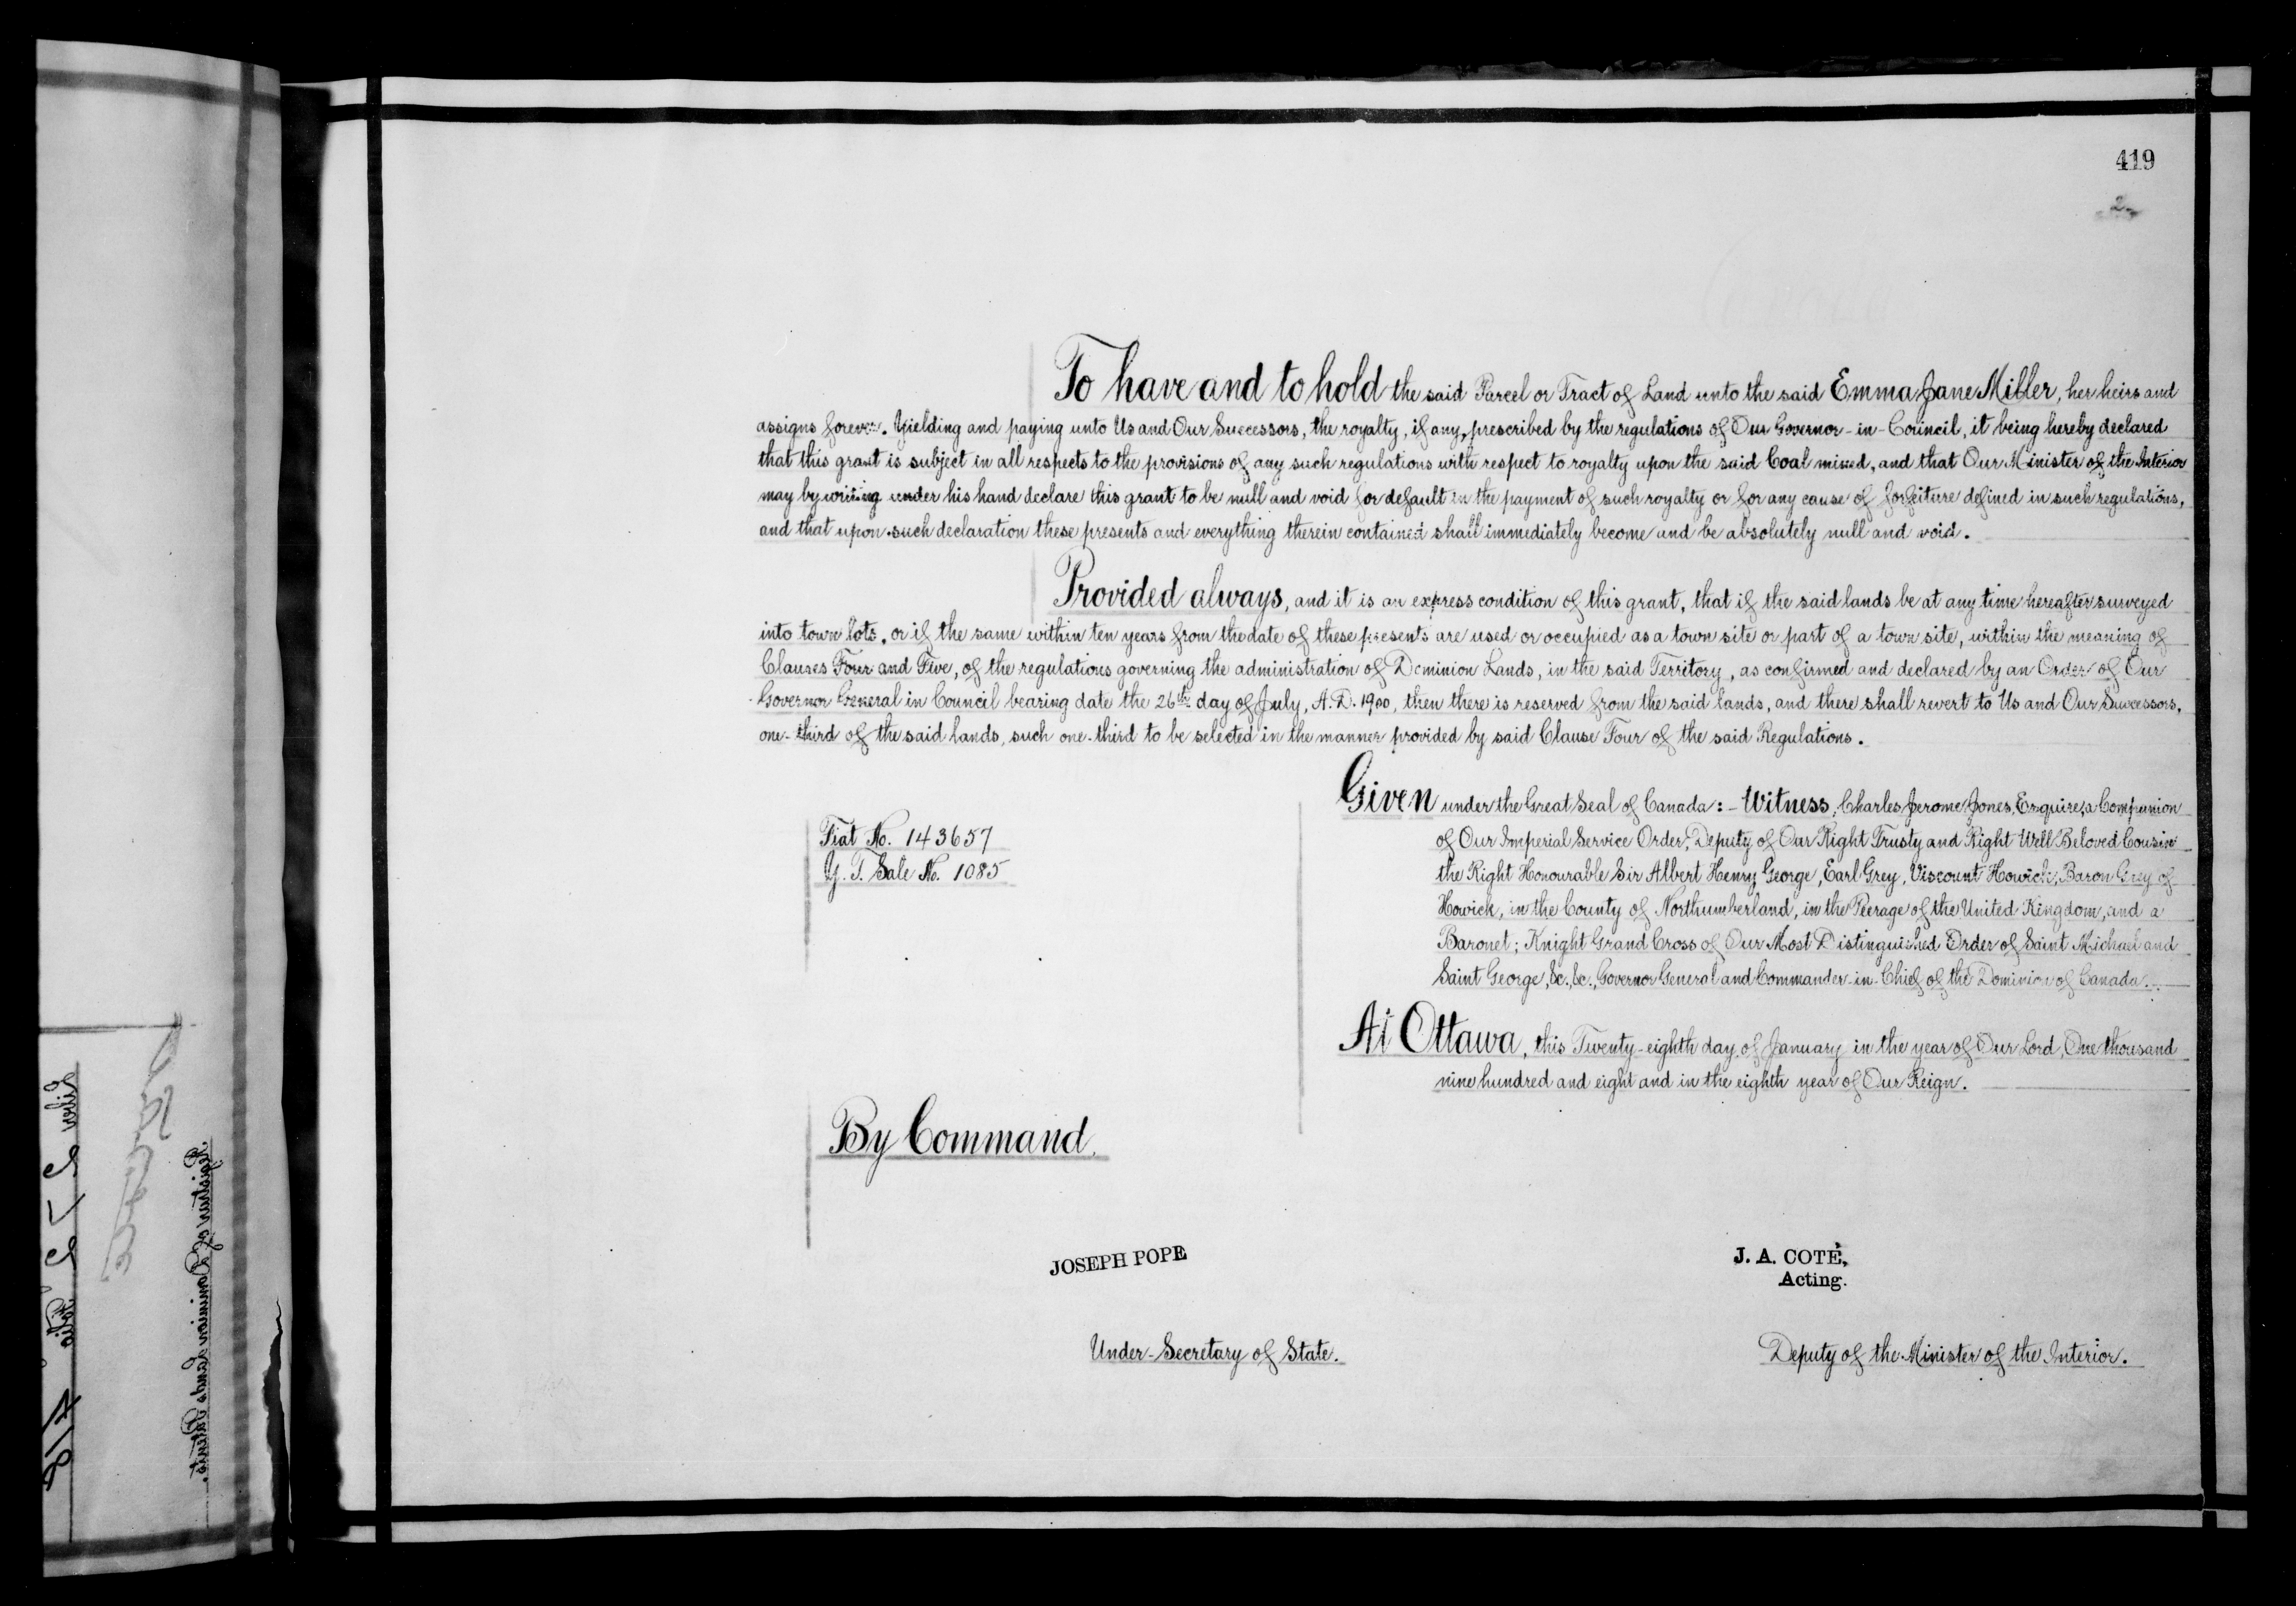 419
2
To have and to hold the said Parcel or Tract of Land unto the said Emma Jane Miller, her heirs and
assigns forever. Yielding and paying unto Us and Our Successors, the royalty, if any, prescribed by the regulations of Our Governor-in-Council, it being hereby declared
that this grant is subject in all respects to the provisions of any such regulations with respect to royalty upon the said Coal mined, and that Our Minister of the Interior
may by writing under his hand declare this grant to be null and void for default in the payment of such royalty or for any cause of forfeiture defined in such regulations,
and that upon such declaration these presents and everything therein contained shall immediately become and be absolutely null and void.
Provided always, and it is an express condition of this grant, that if the said lands be at any time hereafter surveyed
into town lots, or if the same within ten years from the date of these presents are used or occupied as a town site or part of a town site, within the meaning of
Clauses Four and Five, of the regulations governing the administration of Dominion Lands, in the said Territory, as confirmed and declared by an Order of Our
Governor General in Council bearing date the 26th day of July, A.D. 1900, then there is reserved from the said lands, and there shall revert to Us and Our Successors,
one-third of the said lands, such one-third to be selected in the manner provided by said Clause Four of the said Regulations.
Fiat No. 143657
Y. T. Sale No. 1085
Given under the Great Seal of Canada:- Witness, Charles Jerome Jones, Esquire, a Companion
of Our Imperial Service Order, Deputy of Our Right Trusty and Right Well Beloved Cousin
the Right Honourable Sir Albert Henry George, Earl Grey, Viscount Howick, Baron Grey of
Howick, in the County of Northumberland, in the Peerage of the United Kingdom, and a
Baronet; Knight Grand Cross of Our Most Distinguished Order of Saint Michael and
Saint George, &c., &c., Governor General and Commander-in-Chief of the Dominion of Canada.
At Ottawa, this Twenty-eighth day of January in the year of Our Lord, One thousand
nine hundred and eight and in the eighth year of Our Reign.
By Command,
JOSEPH POPE
Under-Secretary of State.
J. A. COTÉ,
Acting.
Deputy of the Minister of the Interior.
Registrar of Dominion Lands Patents.